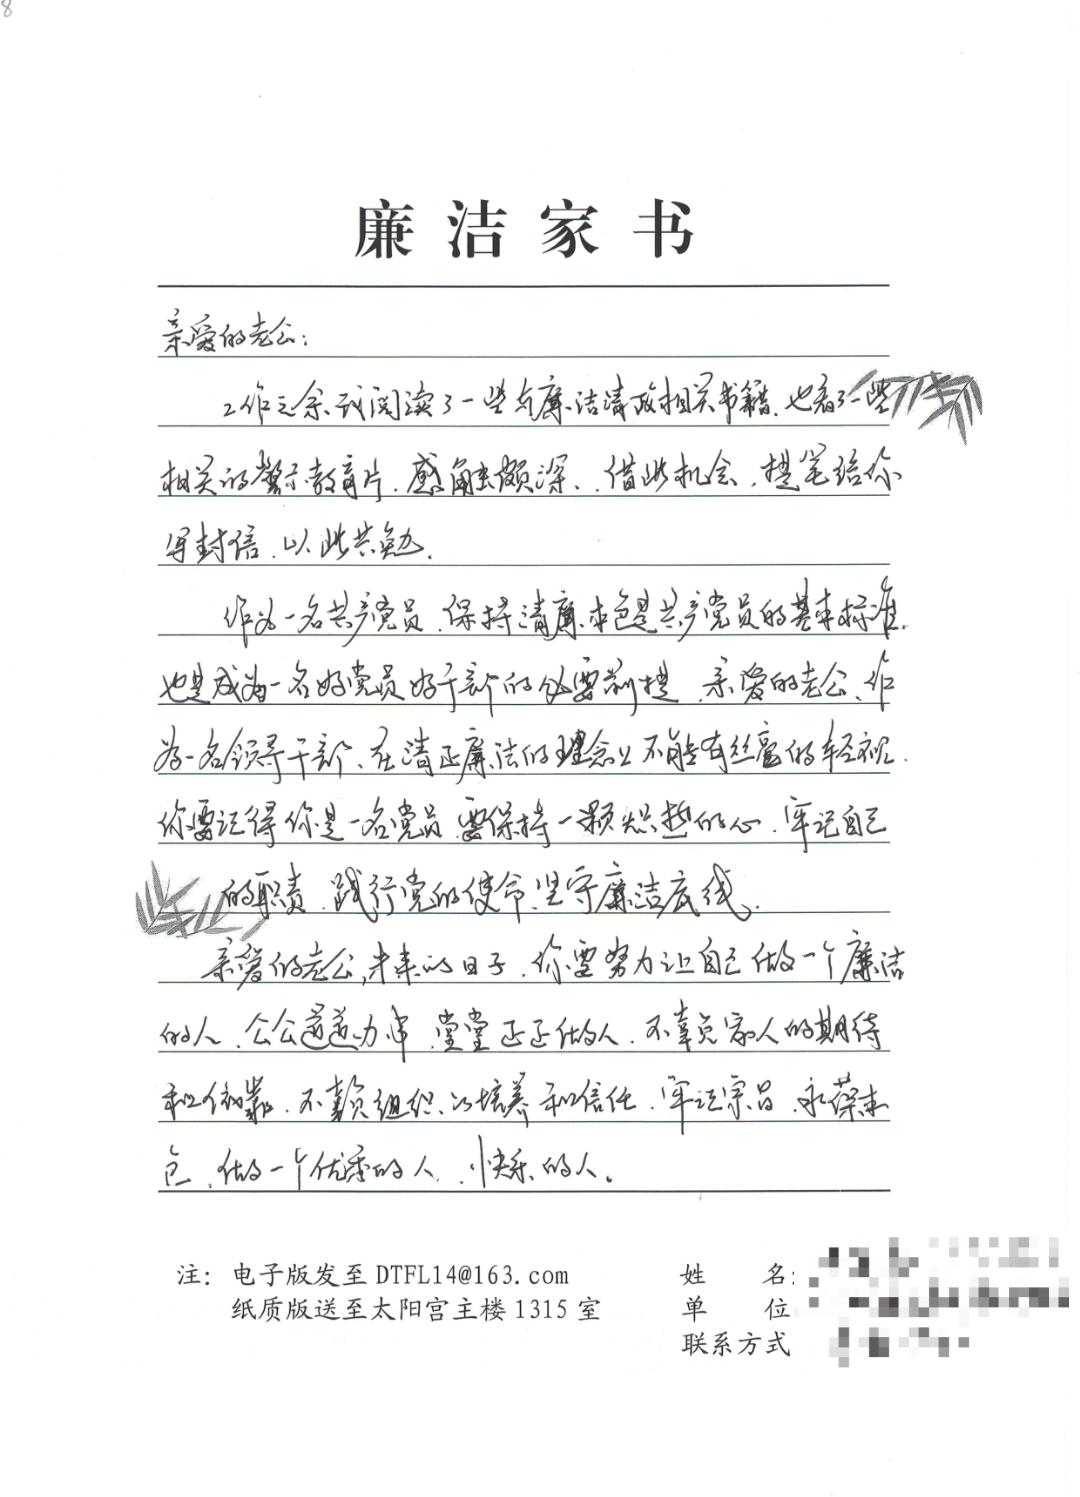 8
廉洁家书
亲爱的老公：
工作之余，我阅读了一些与廉洁清政相关书籍，也看了一些
相关的警示教育片，感触颇深，借此机会，提笔给你
写封信，以此共勉。
作为一名共产党员，保持清廉本色是共产党员的基本标准，
也是成为一名好党员好干部的必要前提，亲爱的老公，作
为一名领导干部，在清正廉洁的理念上不能有丝毫的轻视，
你要记得你是一名党员，要保持一颗炽热的心，牢记自己
的职责，践行党的使命，坚守廉洁底线。
亲爱的老公，未来的日子，你要努力让自己做一个廉洁
的人，公公道道办事，堂堂正正做人，不辜负家人的期待
和依靠，不辜负组织的培养和信任，牢记宗旨，永葆本
色，做一个优秀的人，快乐的人。
注：电子版发至 DTFL14@163.com
纸质版送至太阳宫主楼 1315 室
姓 名：
单 位
联系方式